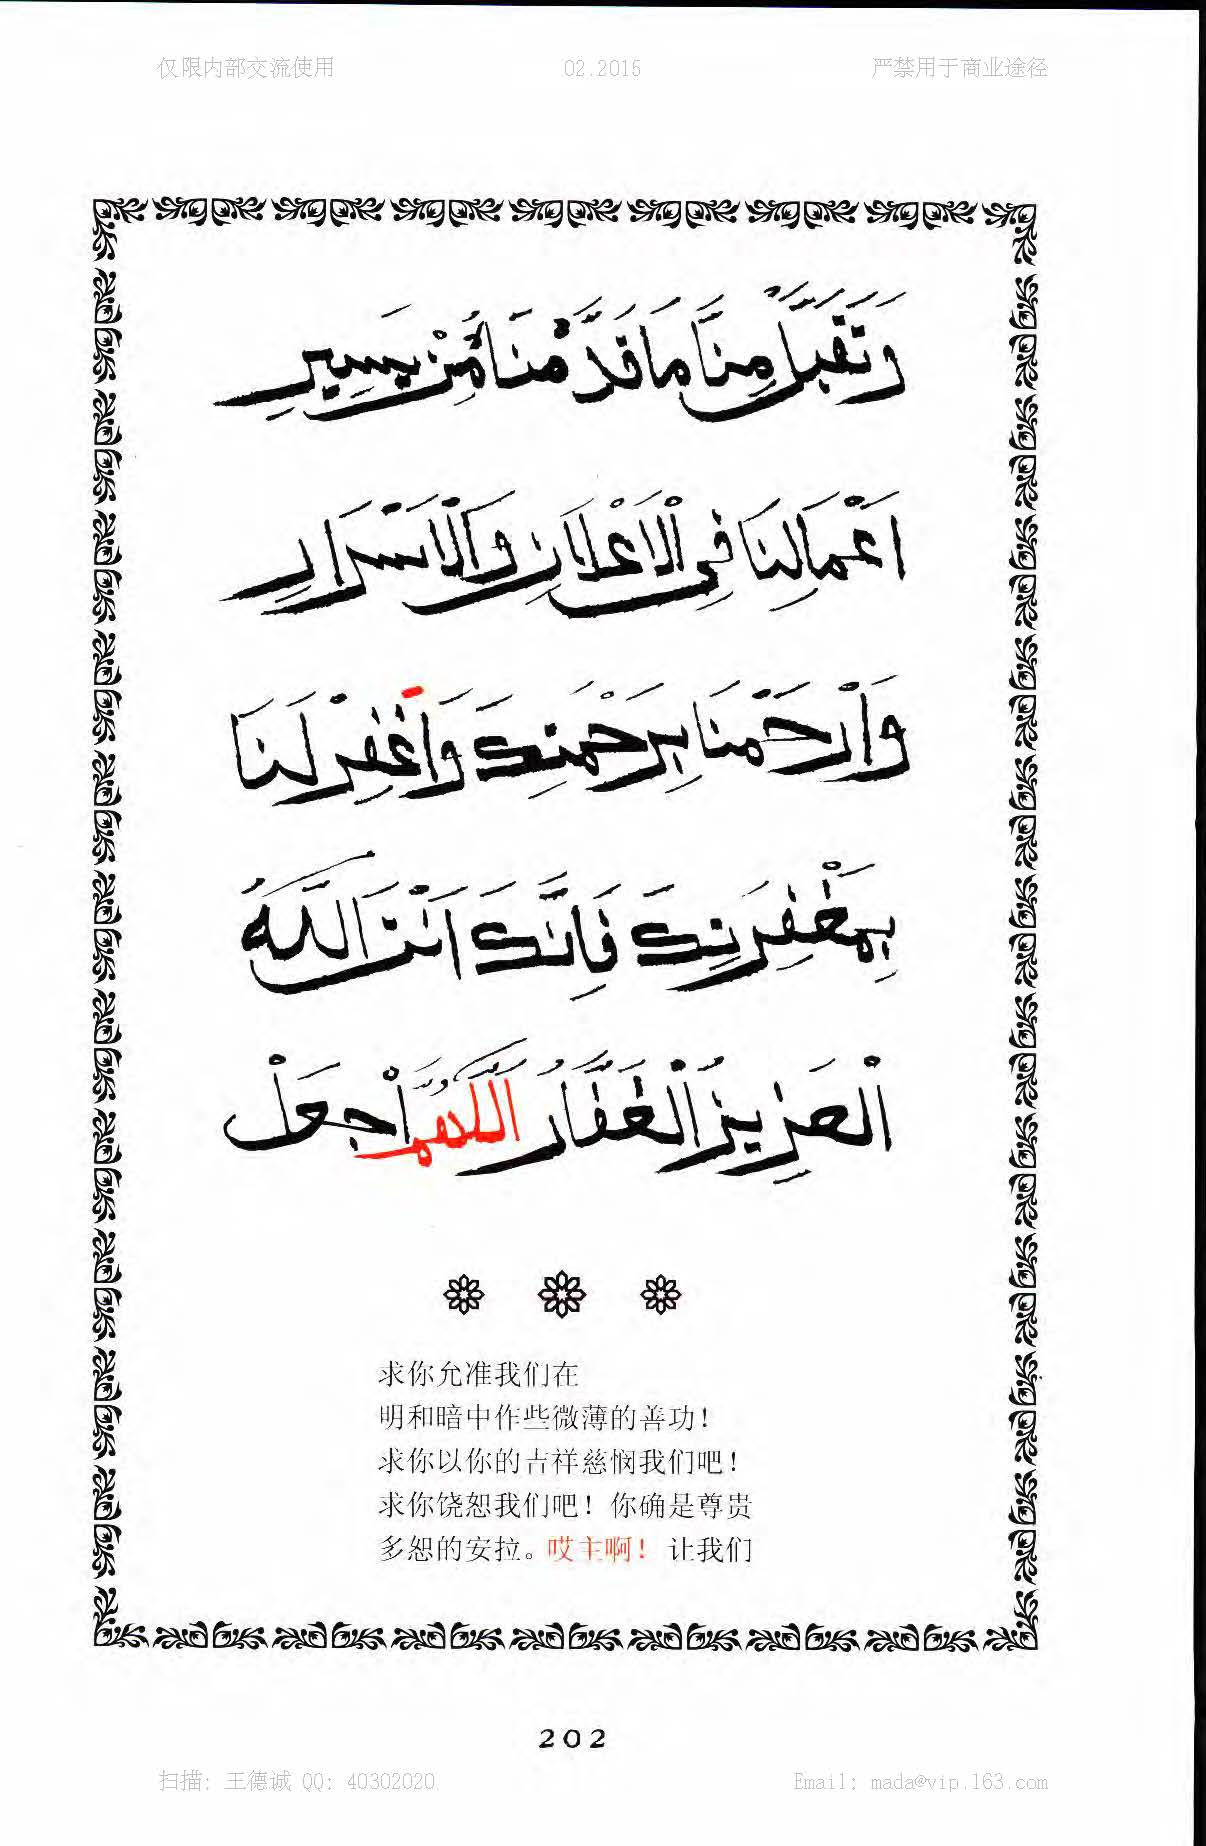 仅限内部交流使用 02.2015 严禁用于商业途径
وَتَقَبَّلْ مِنَّا مَا قَدَّمْنَا مِنْ يَسِيرِ
اَعْمَالِنَا فِي الْاَعْلَانِ وَالْاَسْرَارِ
وَارْحَمْنَا بِرَحْمَتِكَ وَاغْفِرْ لَنَا
بِمَغْفِرَتِكَ فَاِنَّكَ اَنْتَ اللّٰهُ
الْعَزِيزُ الْغَفَّارُ اَللّٰهُمَّ اجْعَلْ
求你允准我们在
明和暗中作些微薄的善功！
求你以你的吉祥慈悯我们吧！
求你饶恕我们吧！你确是尊贵
多恕的安拉。哎主啊！让我们
202
扫描：王德诚 QQ：40302020 Email：mada@vip.163.com